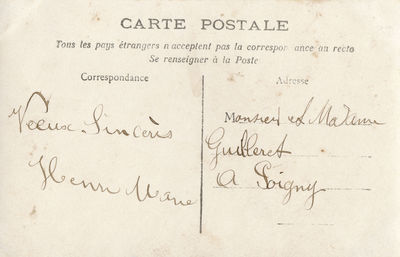 CARTE POSTALE
Tous les pays étrangers n acceptent pas la correspon ance au recto
Se renseigner à la Poste
Correspondance
Adresse
Veeux Sincères
Henri Marie
Monsieur et Madame
Guilleret
A Poigny